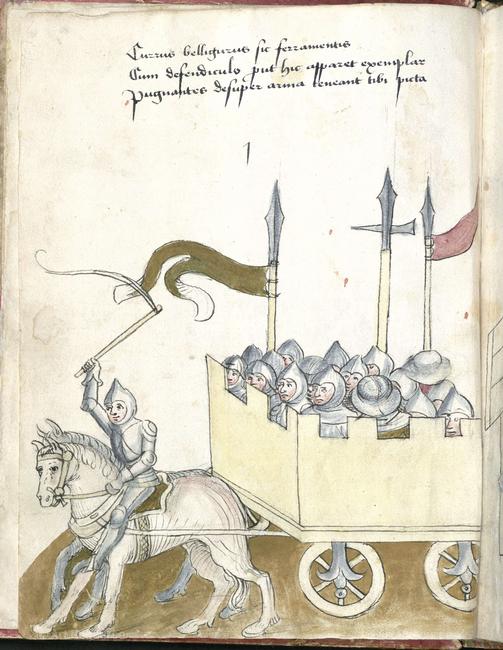 Currus belligurus sic ferramentis
Cum defendiculo put hic apparet exemplar
Pugnantes desuper arma teneant tibi picta